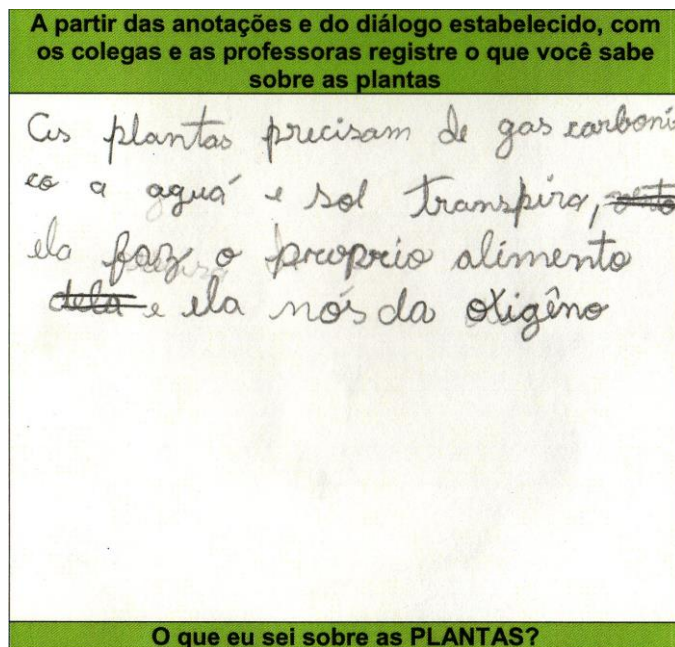 A partir das anotações e do diálogo estabelecido, com
os colegas e as professoras registre o que você sabe
sobre as plantas
As plantas precisam de gas carboni
co a aguá e sol transpira,
ela faz o proprio alimento
dela e ela nós da oxigêno
O que eu sei sobre as PLANTAS?